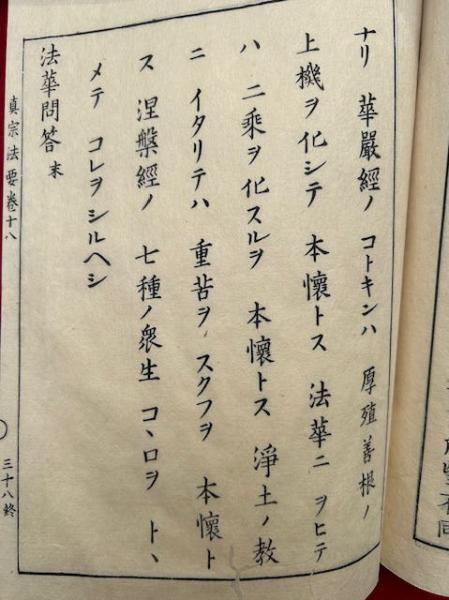 ナリ 華嚴經ノ コトキンハ 厚殖善根ノ
上機ヲ化シテ 本懷トス 法華ニ ヲヒテ
ハ 二乘ヲ化スルヲ 本懷トス 淨土ノ教
ニ イタリテハ 重苦ヲ スクフヲ 本懷ト
ス 涅槃經ノ 七種ノ衆生 コヽロヲ トヽ
メテ コレヲ シルヘシ
法華問答 末
真宗法要卷十八
三十八終
不同